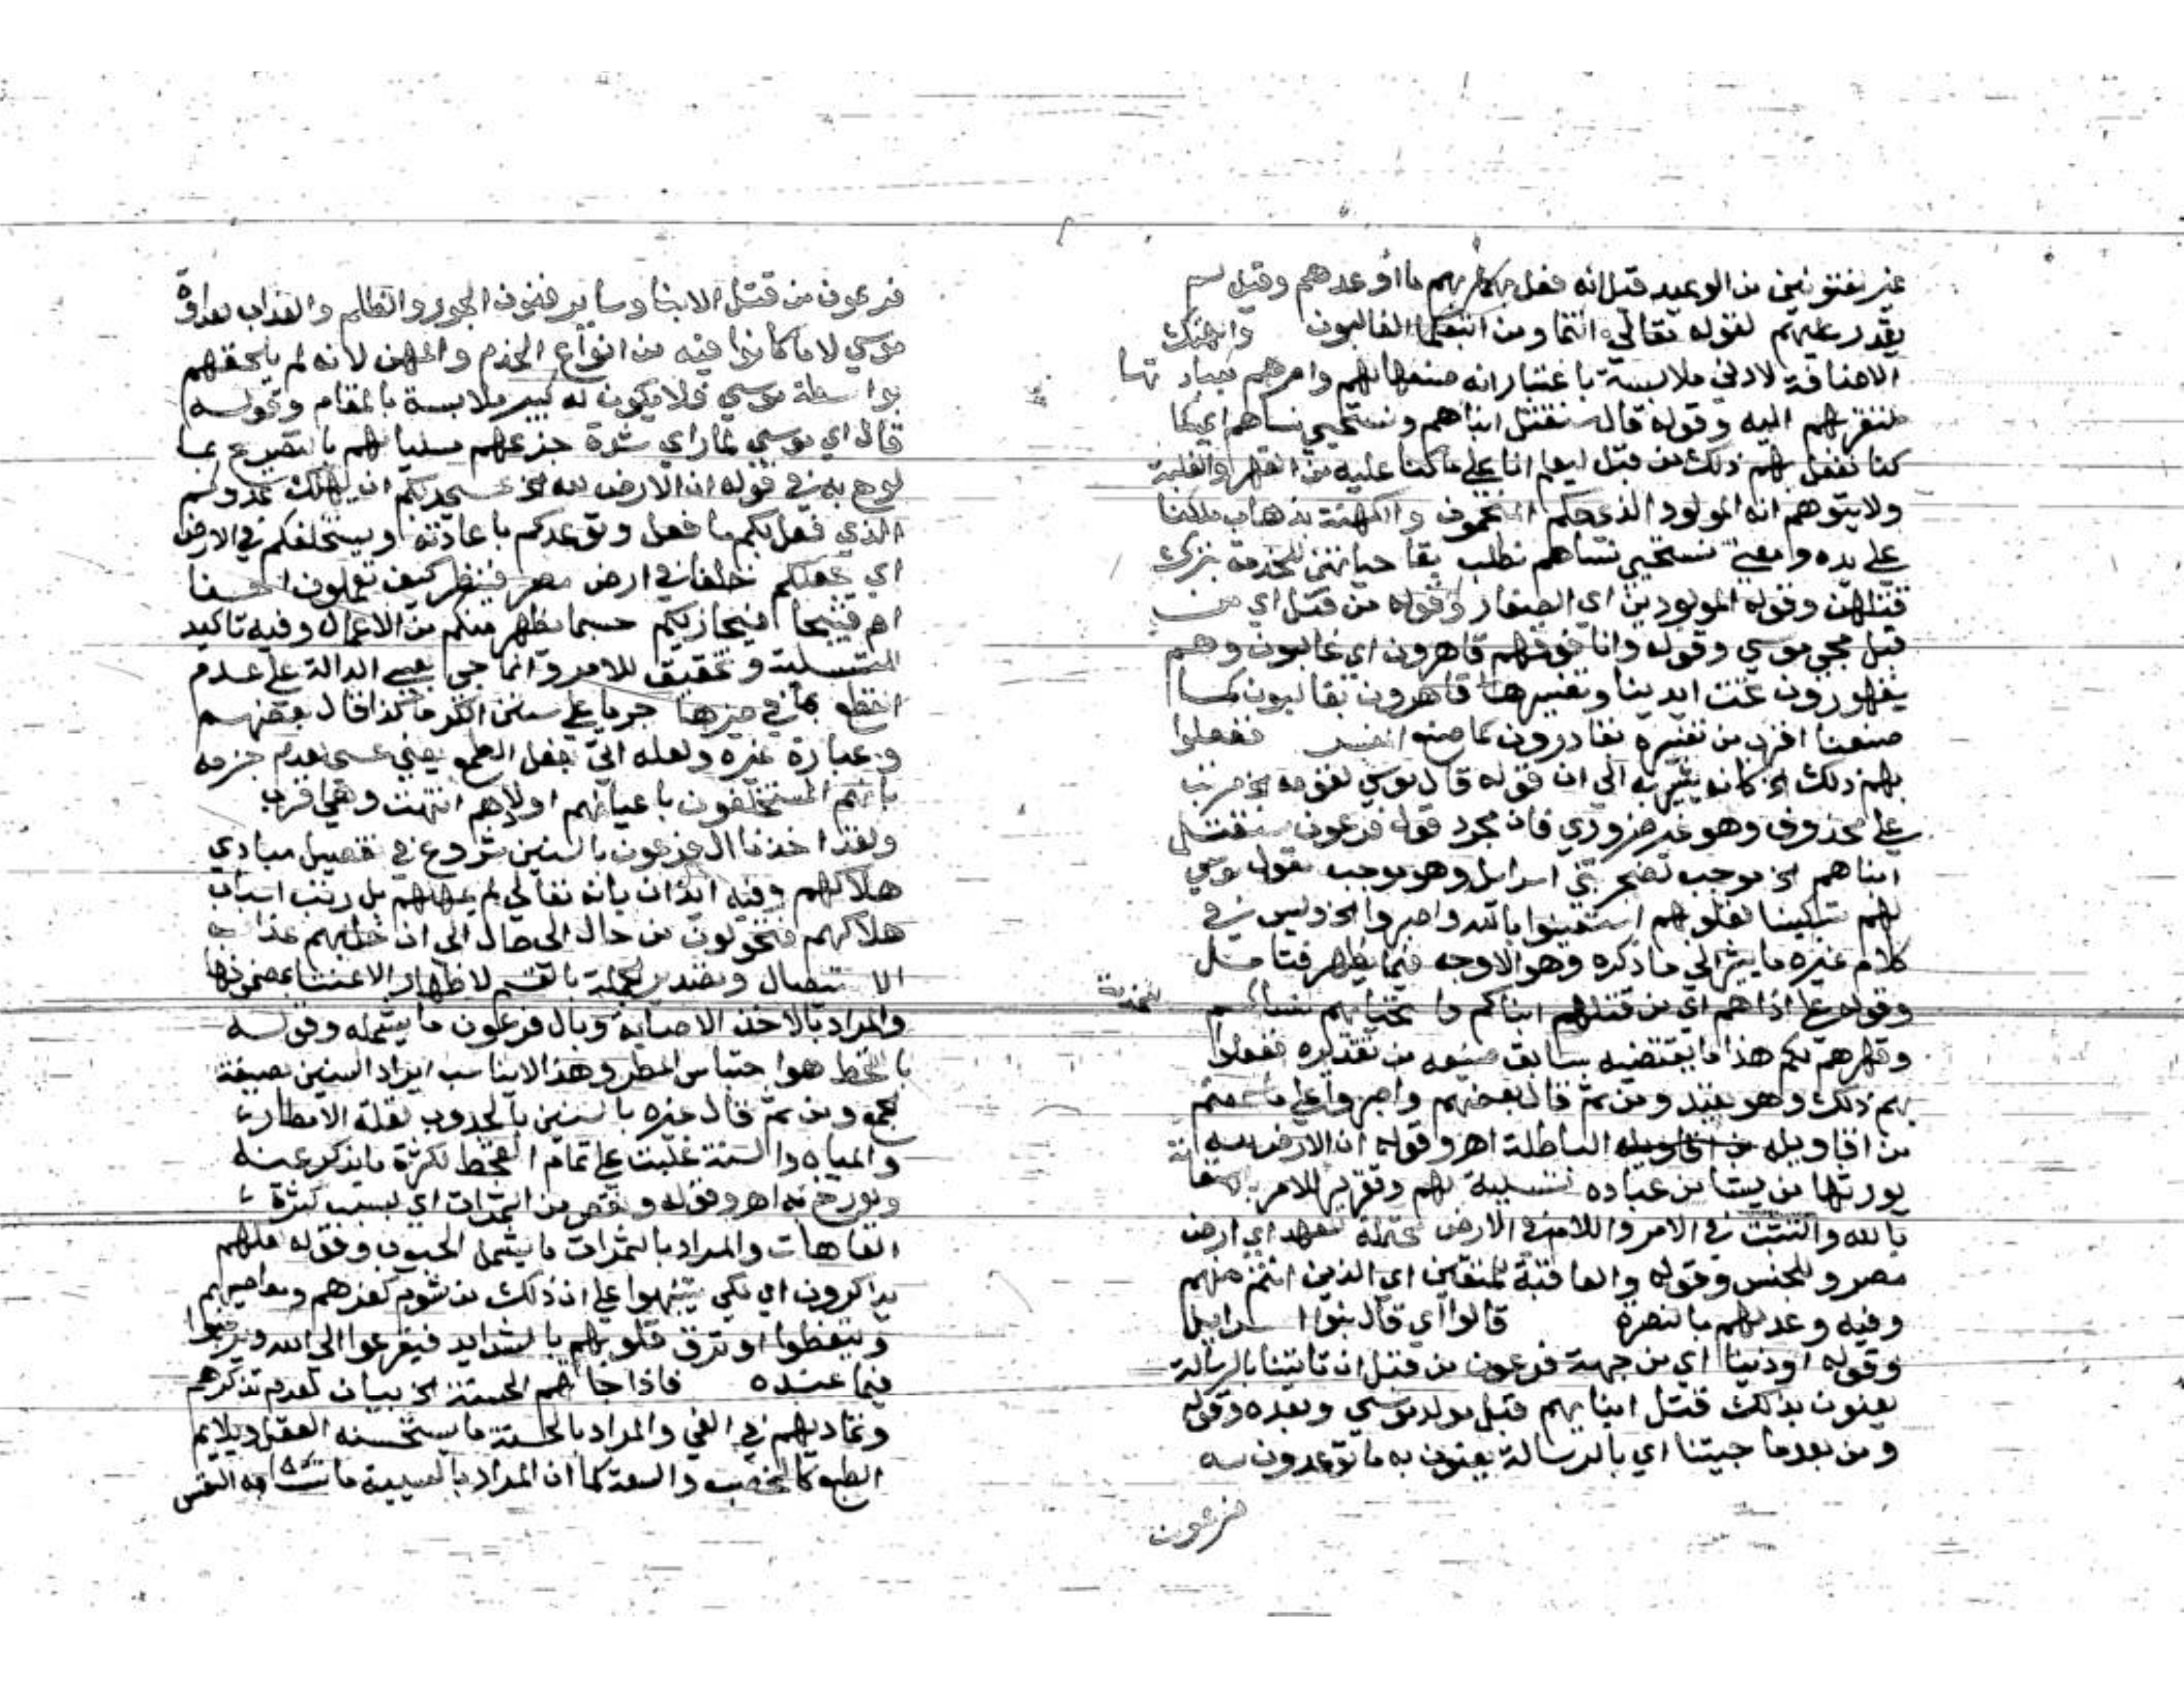 غير مفتونين من الوعيد قيل انه فعل بهم ما أوعدهم وقيل لم
يقدر عليهم لقوله تعالى انتما ومن اتبعكما الغالبون والهتك
الاضافة لادنى ملابسة باعتبار انه صنعها لهم وامرهم بعبادتها
لتقربهم اليه وقوله قال سنقتل ابناهم ونستحيي نساهم اي كما
كنا نفعل بهم ذلك من قبل ليعلم انا على ما كنا عليه من القهر والغلبة
ولا يتوهم انه المولود الذي حكم المنجمون والكهنة بذهاب ملكنا
على يده ومعنى نستحيي نساهم نطلب بقا حياتهن للخدمة بترك
قتلهن وقوله المولودين اي الصغار وقوله من قبل اي من
قبل مجي موسى وقوله وانا فوقهم قاهرون اي غالبون وهم
مقهورون تحت ايدينا وتفسيرها قاهرون بغالبون كما
صنعنا اقرب من تفسيره بقادرون كما صنع المفسر ففعلوا
بهم ذلك الخ كانه يشير به الى ان قوله قال موسى لقومه الخ مرتب
على محذوف وهو غير ضروري فان مجرد قول فرعون سنقتل
ابناهم الخ يوجب تضجر بني اسرايل وهو يوجب قول موسى
لهم تسكينا لقلوبهم استعينوا بالله واصبروا الخ وليس في
كلام غيره ما يشير الى ما ذكره وهو الاوجه فيما يظهر فتامل
وقوله على اذاهم اي من قتلهم ابناكم واستحيايهم نساكم
وقهرهم لكم هذا ما يقتضيه سابق صنيعه من تقديره ففعلوا
بهم ذلك وهو بعيد ومن ثم قال بعضهم واصبروا على ما سمعتم
من اقاويله الباطلة اهـ وقوله ان الارض لله
يورثها من يشا من عباده تسلية لهم وتقرير للامر بالاستعانة
بالله والتثبت في الامر واللام في الارض محتملة للعهد اي ارض
مصر وللجنس وقوله والعاقبة للمتقين اي الذين انتم منهم
وفيه وعد لهم بالنصرة قالوا اي قال بنوا اسرايل
وقوله اوذينا اي من جهة فرعون من قبل ان تاتينا بالرسالة
يعنون بذلك قتل ابنايهم قبل مولد موسى وبعده وقوله
ومن بعد ما جيتنا اي بالرسالة يعنون به ما توعدون به
فرعون
فرعون من قتل الابنا وساير فنون الجور والظلم والعذاب بعداوة
موسى لا ما كانوا فيه من انواع الخدم والمهن لانه لم يلحقهم
بواسطة موسى فلا يكون له كبير ملابسة بالمقام وقوله
قال اي موسى لما راي شدة جزعهم مسليا لهم بالتصريح بما
لوح به في قوله ان الارض لله الخ عسى ربكم ان يهلك عدوكم
الذي فعل بكم ما فعل وتوعدكم باعادته ويستخلفكم في الارض
اي يجعلكم خلفا في ارض مصر فينظر كيف تعملون احسنا
ام قبيحا فيجازيكم حسبما يظهر منكم من الاعمال وفيه تاكيد
التسلية وتحقيق للامر وانما جي بعسى الدالة على عدم
القطع بما في حيزها جريا على سنن الكرما كذا قال بعضهم
وعبارة غيره ولعله اتى بفعل الطمع يعني عسى لعدم جزمه
بانهم المستخلفون باعيانهم اولادهم انتهت وهي اقرب
ولقد اخذنا ال فرعون بالسنين شروع في تفصيل مبادي
هلاكهم وفيه ايذان بانه تعالى لم يمهلهم بل رتب اسباب
هلاكهم فتحولون من حال الى حال الى ان حل بهم عذاب
الاستيصال وتصدير الجملة بالقسم لاظهار الاعتنا بمضمونها
والمراد بالاخذ الاصابة وبال فرعون ما يشمله وقوله
بالقحط هو احتباس المطر وهذا لا يناسب ايراد السنين بصيغة
الجمع ومن ثم قال غيره بالسنين بالجدوب لقلة الامطار
والمياه والسنة غلبت على تمام القحط لكثرة ما يذكر عنه
ويورخ به اهـ وقوله ونقص من الثمرات اي بسبب كثرة
العاهات والمراد بالثمرات ما يشمل الحبوب وقوله لعلهم
يذكرون اي لكي ينتبهوا على ان ذلك من شوم كفرهم ومعاصيهم
ويتعظوا او ترق قلوبهم بالشدايد فيفزعوا الى الله ويرغبوا
فيما عنده فاذا جاتهم الحسنة الخ بيان لعدم تذكرهم
وتماديهم في الغي والمراد بالحسنة ما يستحسنه العقل ويلايم
الطبع كالخصب والسعة كما ان المراد بالسيية ما تتشام به النفس